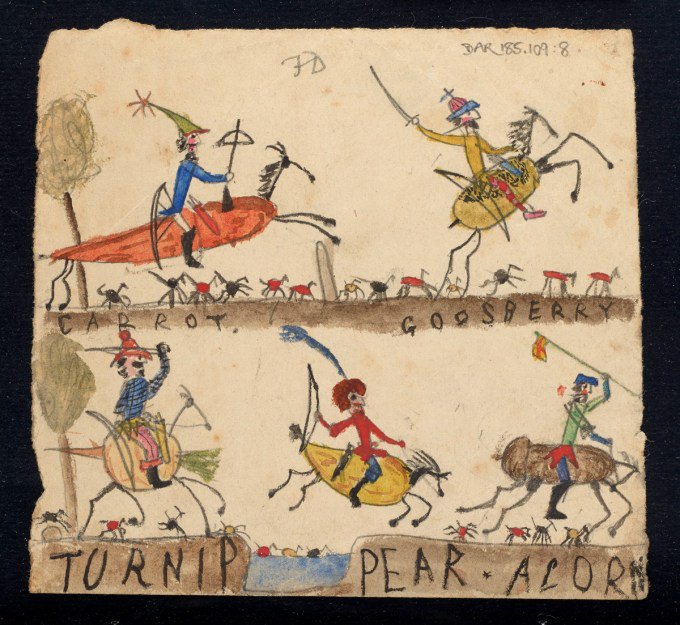 FD
DAR 185.109:8.
CARROT. GOOSBERRY
TURNIP PEAR · ACORN